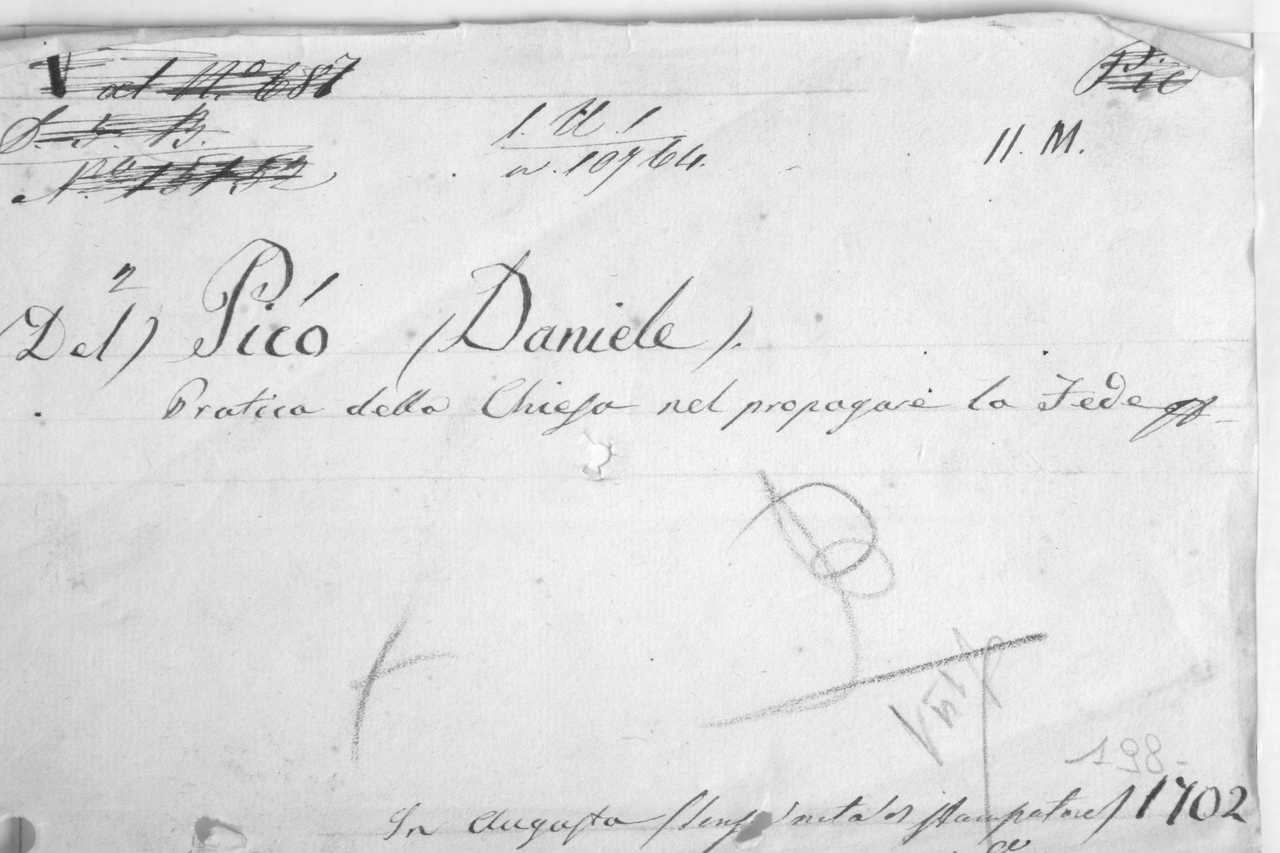 al N.º 687
S. F. B.
I. U I
11. M.
nº 15152
n. 10764.
2
(Del) Picó (Daniele).
Pratica della Chiesa nel propagare la Fede
198-
In Augusta (senz' nota di stampatore) 1702